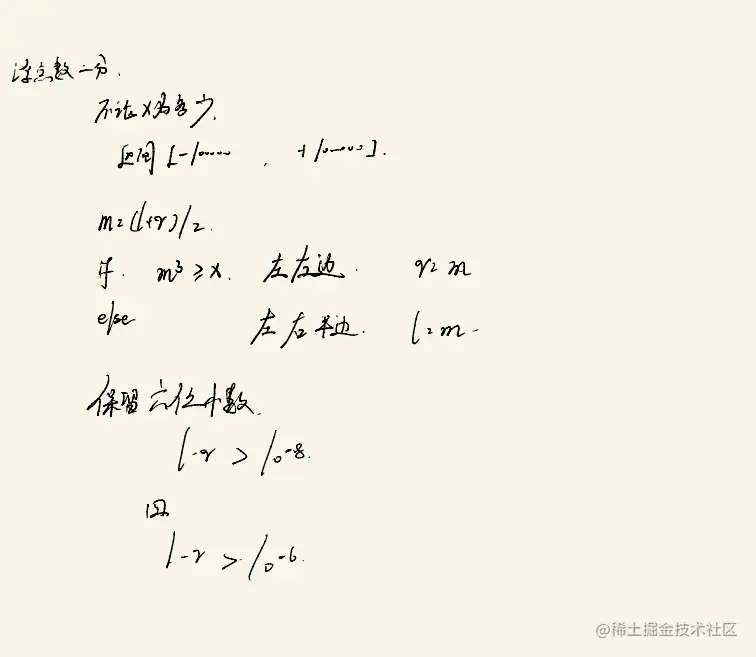 浮点数二分.
不论x为多少,
区间[-10000 , +10000].
m=(l+r)/2.
if. m³ ≥ x. 在左边. r=m
else 在右半边. l=m
保留六位小数.
l-r > 10-8.
l-r > 10-6.
@稀土掘金技术社区